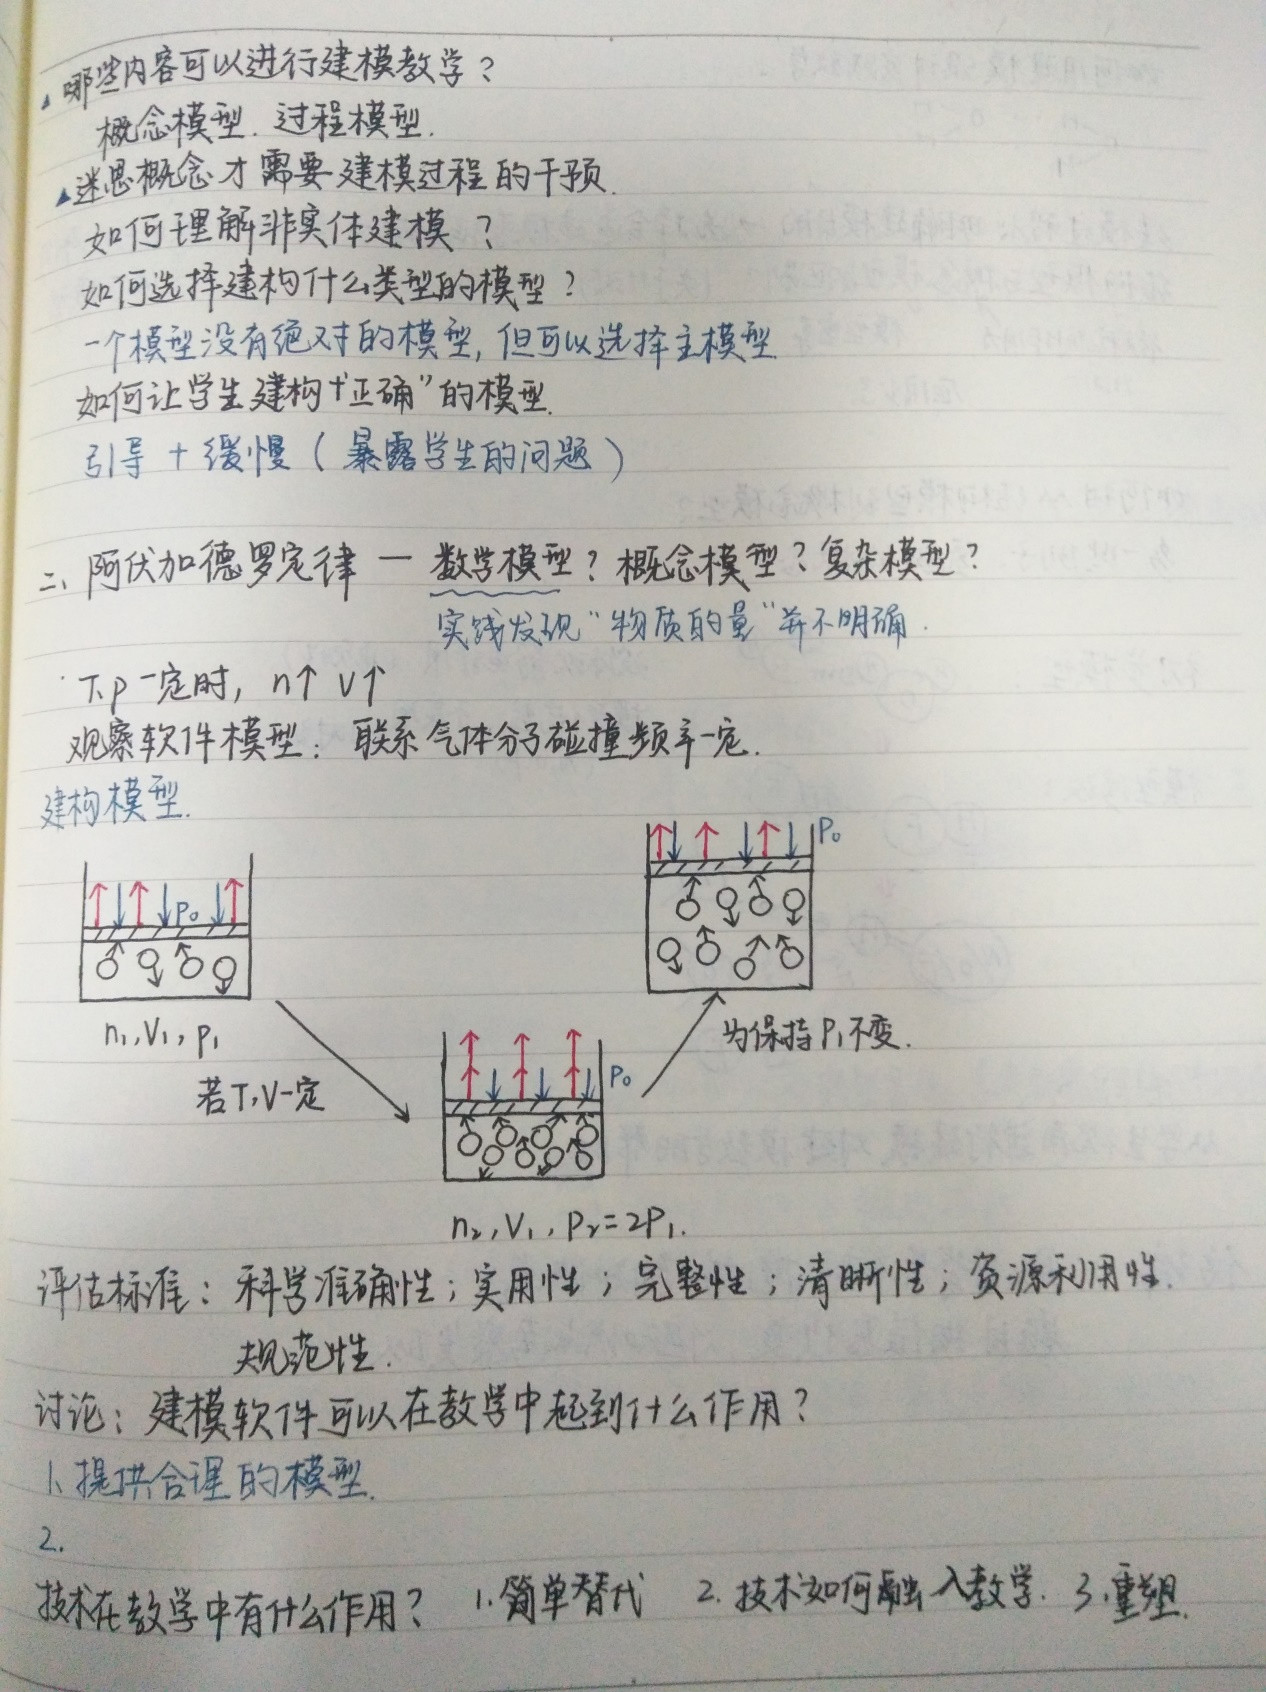 ▲哪些内容可以进行建模教学?
概念模型. 过程模型.
▲迷思概念才需要建模过程的干预.
如何理解非实体建模?
如何选择建构什么类型的模型?
一个模型没有绝对的模型, 但可以选择主模型.
如何让学生建构“正确”的模型.
引导+缓慢(暴露学生的问题)
二、阿伏加德罗定律 — 数学模型? 概念模型? 复杂模型?
实践发现“物质的量”并不明确.
T.p一定时, n↑ V↑
观察软件模型: 联系气体分子碰撞频率一定.
建构模型.
P₀
P₀
n₁,V₁,p₁
为保持P₁不变.
若T,V一定
P₀
n₂,V₁,P₂=2P₁.
评估标准: 科学准确性; 实用性; 完整性; 清晰性; 资源利用性.
规范性.
讨论: 建模软件可以在教学中起到什么作用?
1.提供合理的模型.
2.
技术在教学中有什么作用? 1.简单替代 2.技术如何融入教学. 3.重塑.